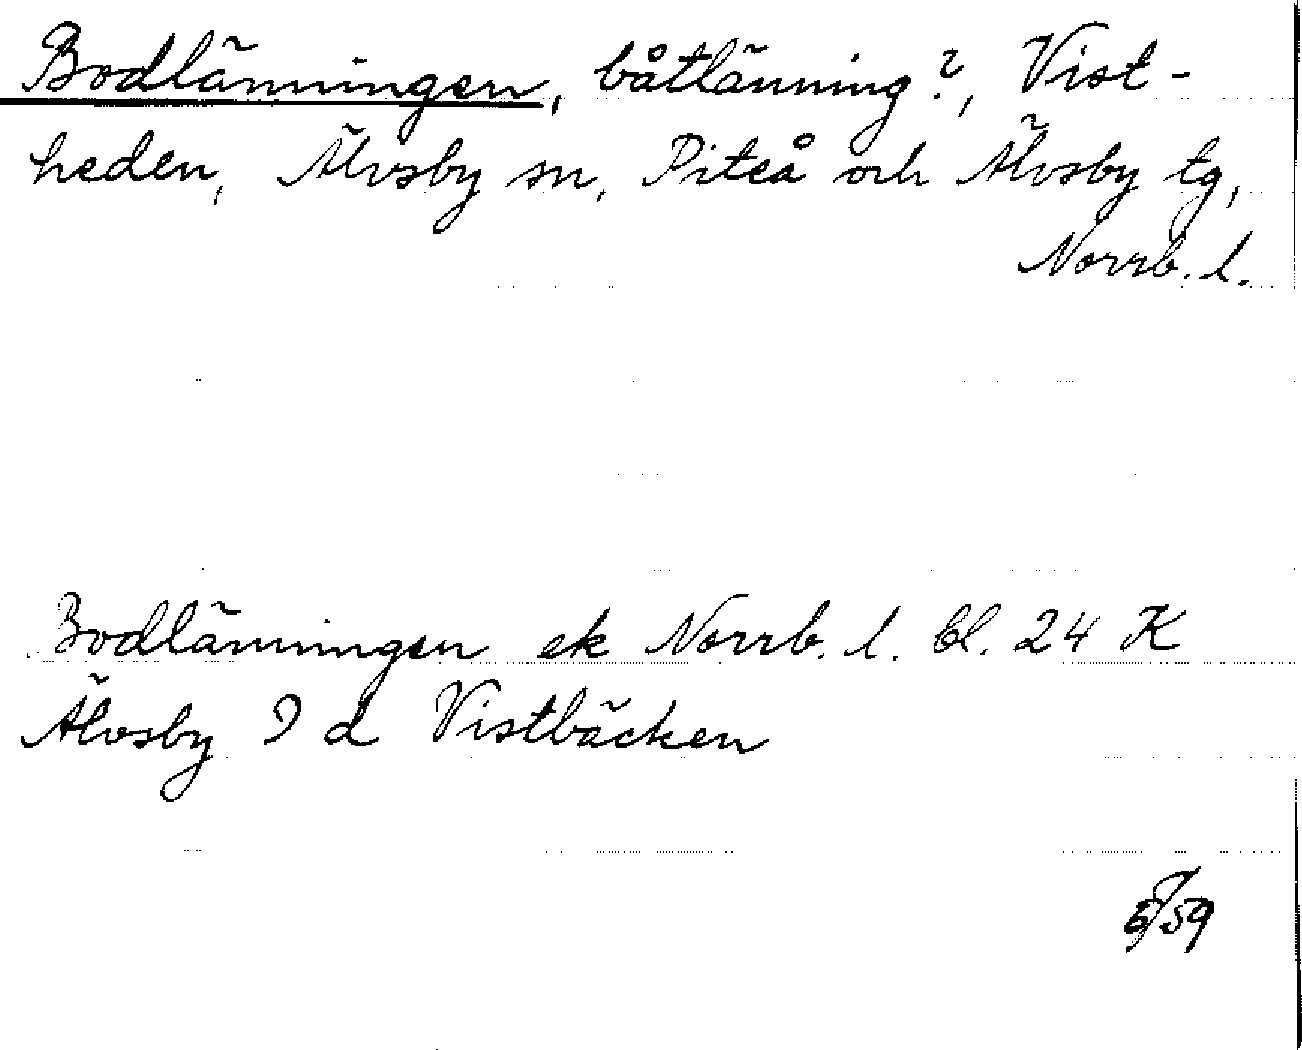 Bodlänningen, båtlänning?, Vist-
heden, Älvsby sn, Piteå och Älvsby tg,
Norrb. l.
Bodlänningen ek Norrb. l. bl. 24 K
Älvsby 9 d Vistbäcken
59